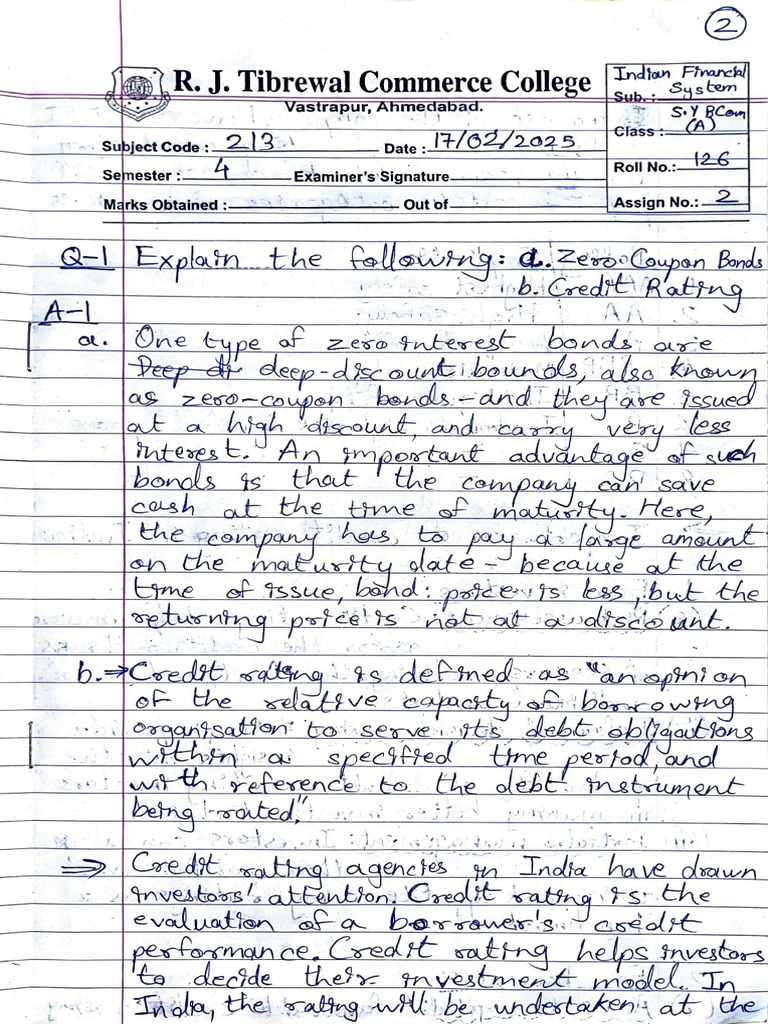 2
R. J. Tibrewal Commerce College
Vastrapur, Ahmedabad.
Indian Financial
Sub. : System
S.Y BCom
Class : (A)
Subject Code : 213 Date : 17/02/2025
Roll No.: 126
Semester : 4 Examiner's Signature
Marks Obtained : Out of
Assign No.: 2
Q-1 Explain the following: a. Zero Coupon Bonds
b. Credit Rating
A-1
a. One type of zero interest bonds are
Deep di deep-discount bounds, also known
as zero-coupon bonds - and they are issued
at a high discount, and carry very less
interest. An important advantage of such
bonds is that the company can save
cash at the time of maturity. Here,
the company has to pay a large amount
on the maturity date - because at the
time of issue, bond price is less, but the
returning price is not at a discount.
b. ⇒ Credit rating is defined as "an opinion
of the relative capacity of borrowing
organisation to serve its debt obligations
within a specified time period, and
with reference to the debt instrument
being rated."
⇒ Credit rating agencies in India have drawn
investors' attention. Credit rating is the
evaluation of a borrower's credit
performance. Credit rating helps investors
to decide their investment model. In
India, the rating will be undertaken at the